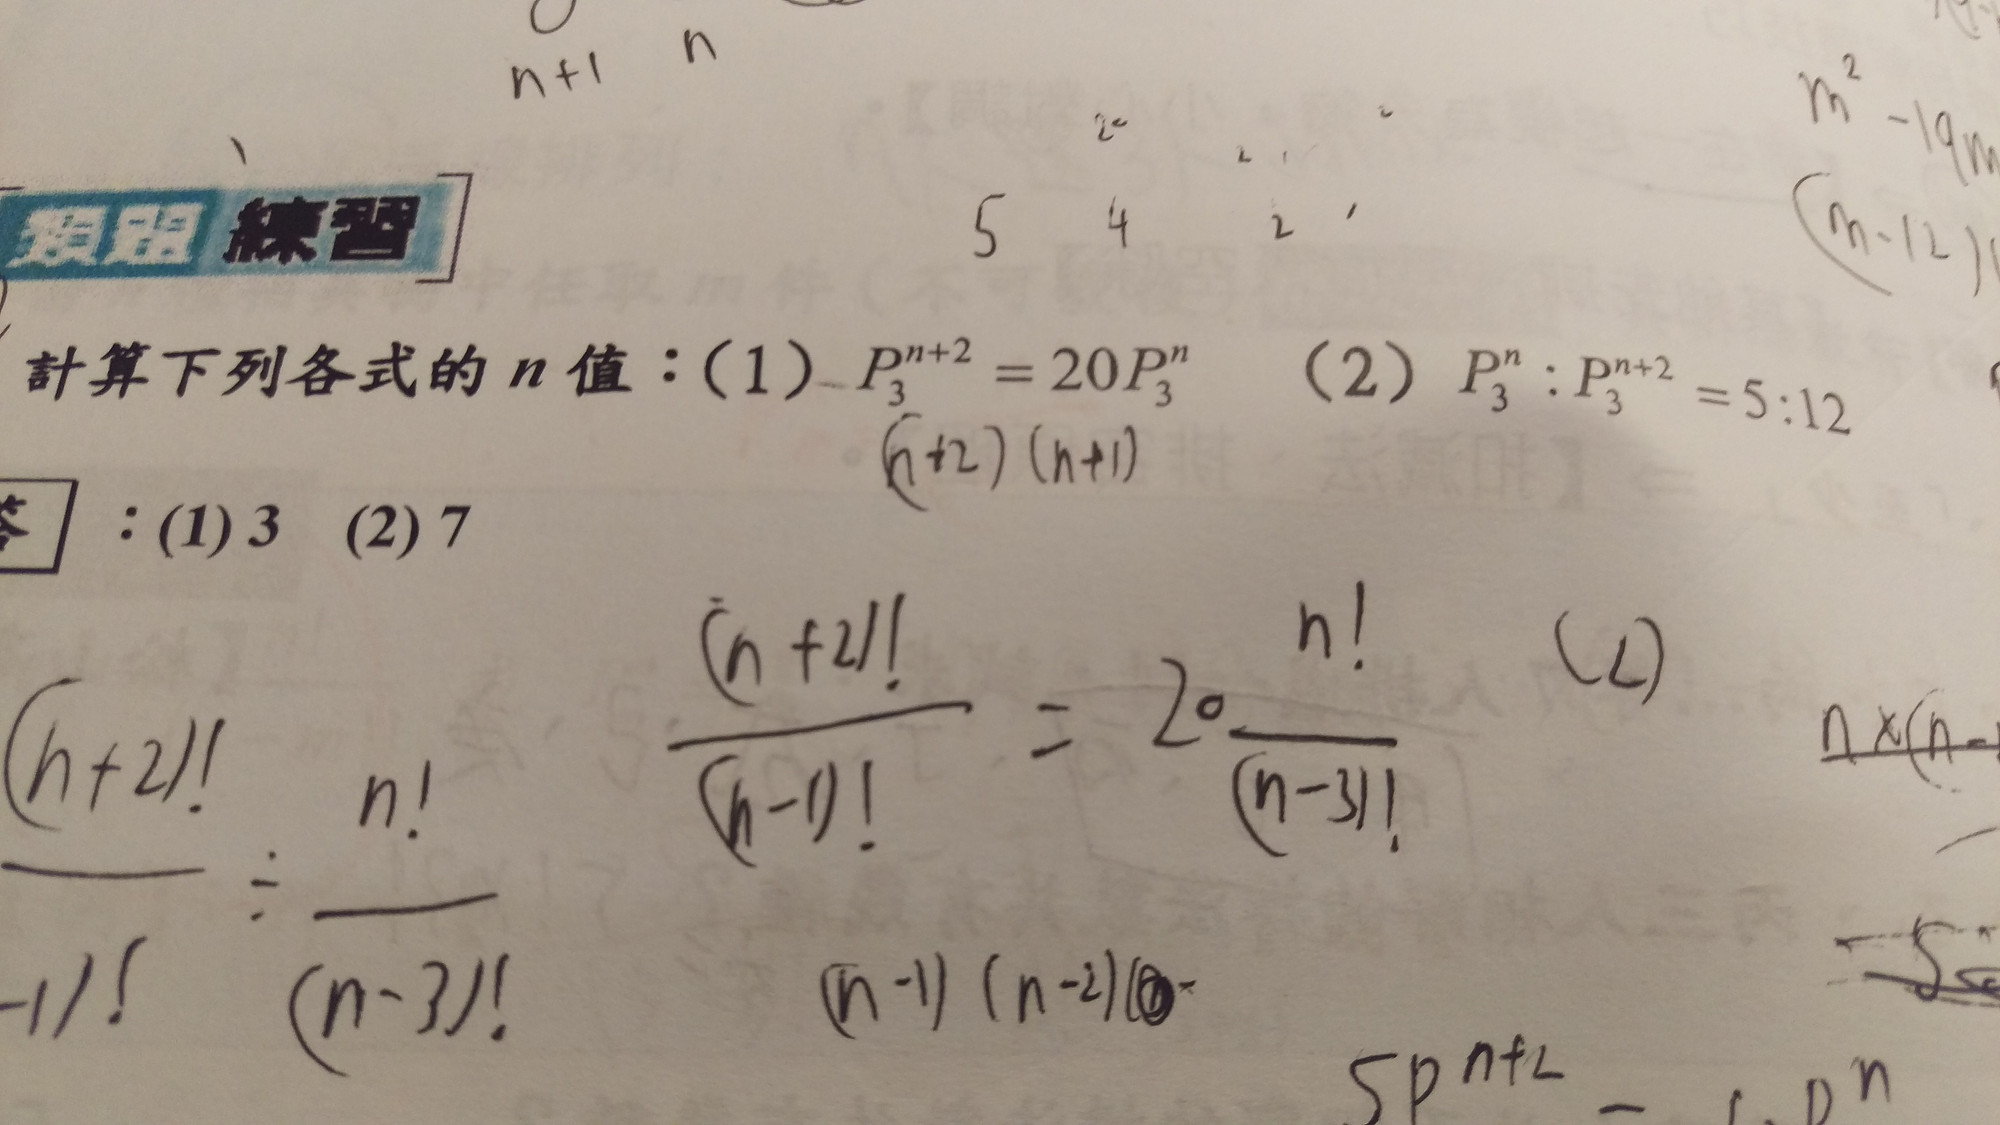 n+1 n
m² -19m
(m-12)(
5 4 2 1
類題 練習
計算下列各式的 n 值：(1) P₃ⁿ⁺² = 20P₃ⁿ (2) P₃ⁿ : P₃ⁿ⁺² = 5:12
(n+2) (n+1)
答 ：(1) 3 (2) 7
(n+2)! / (n-1)! = 20 n! / (n-3)! (2)
(n+2)! / -1)! ÷ n! / (n-3)!
n×(n-
(n-1) (n-2)(
5Pⁿ⁺² = Pⁿ